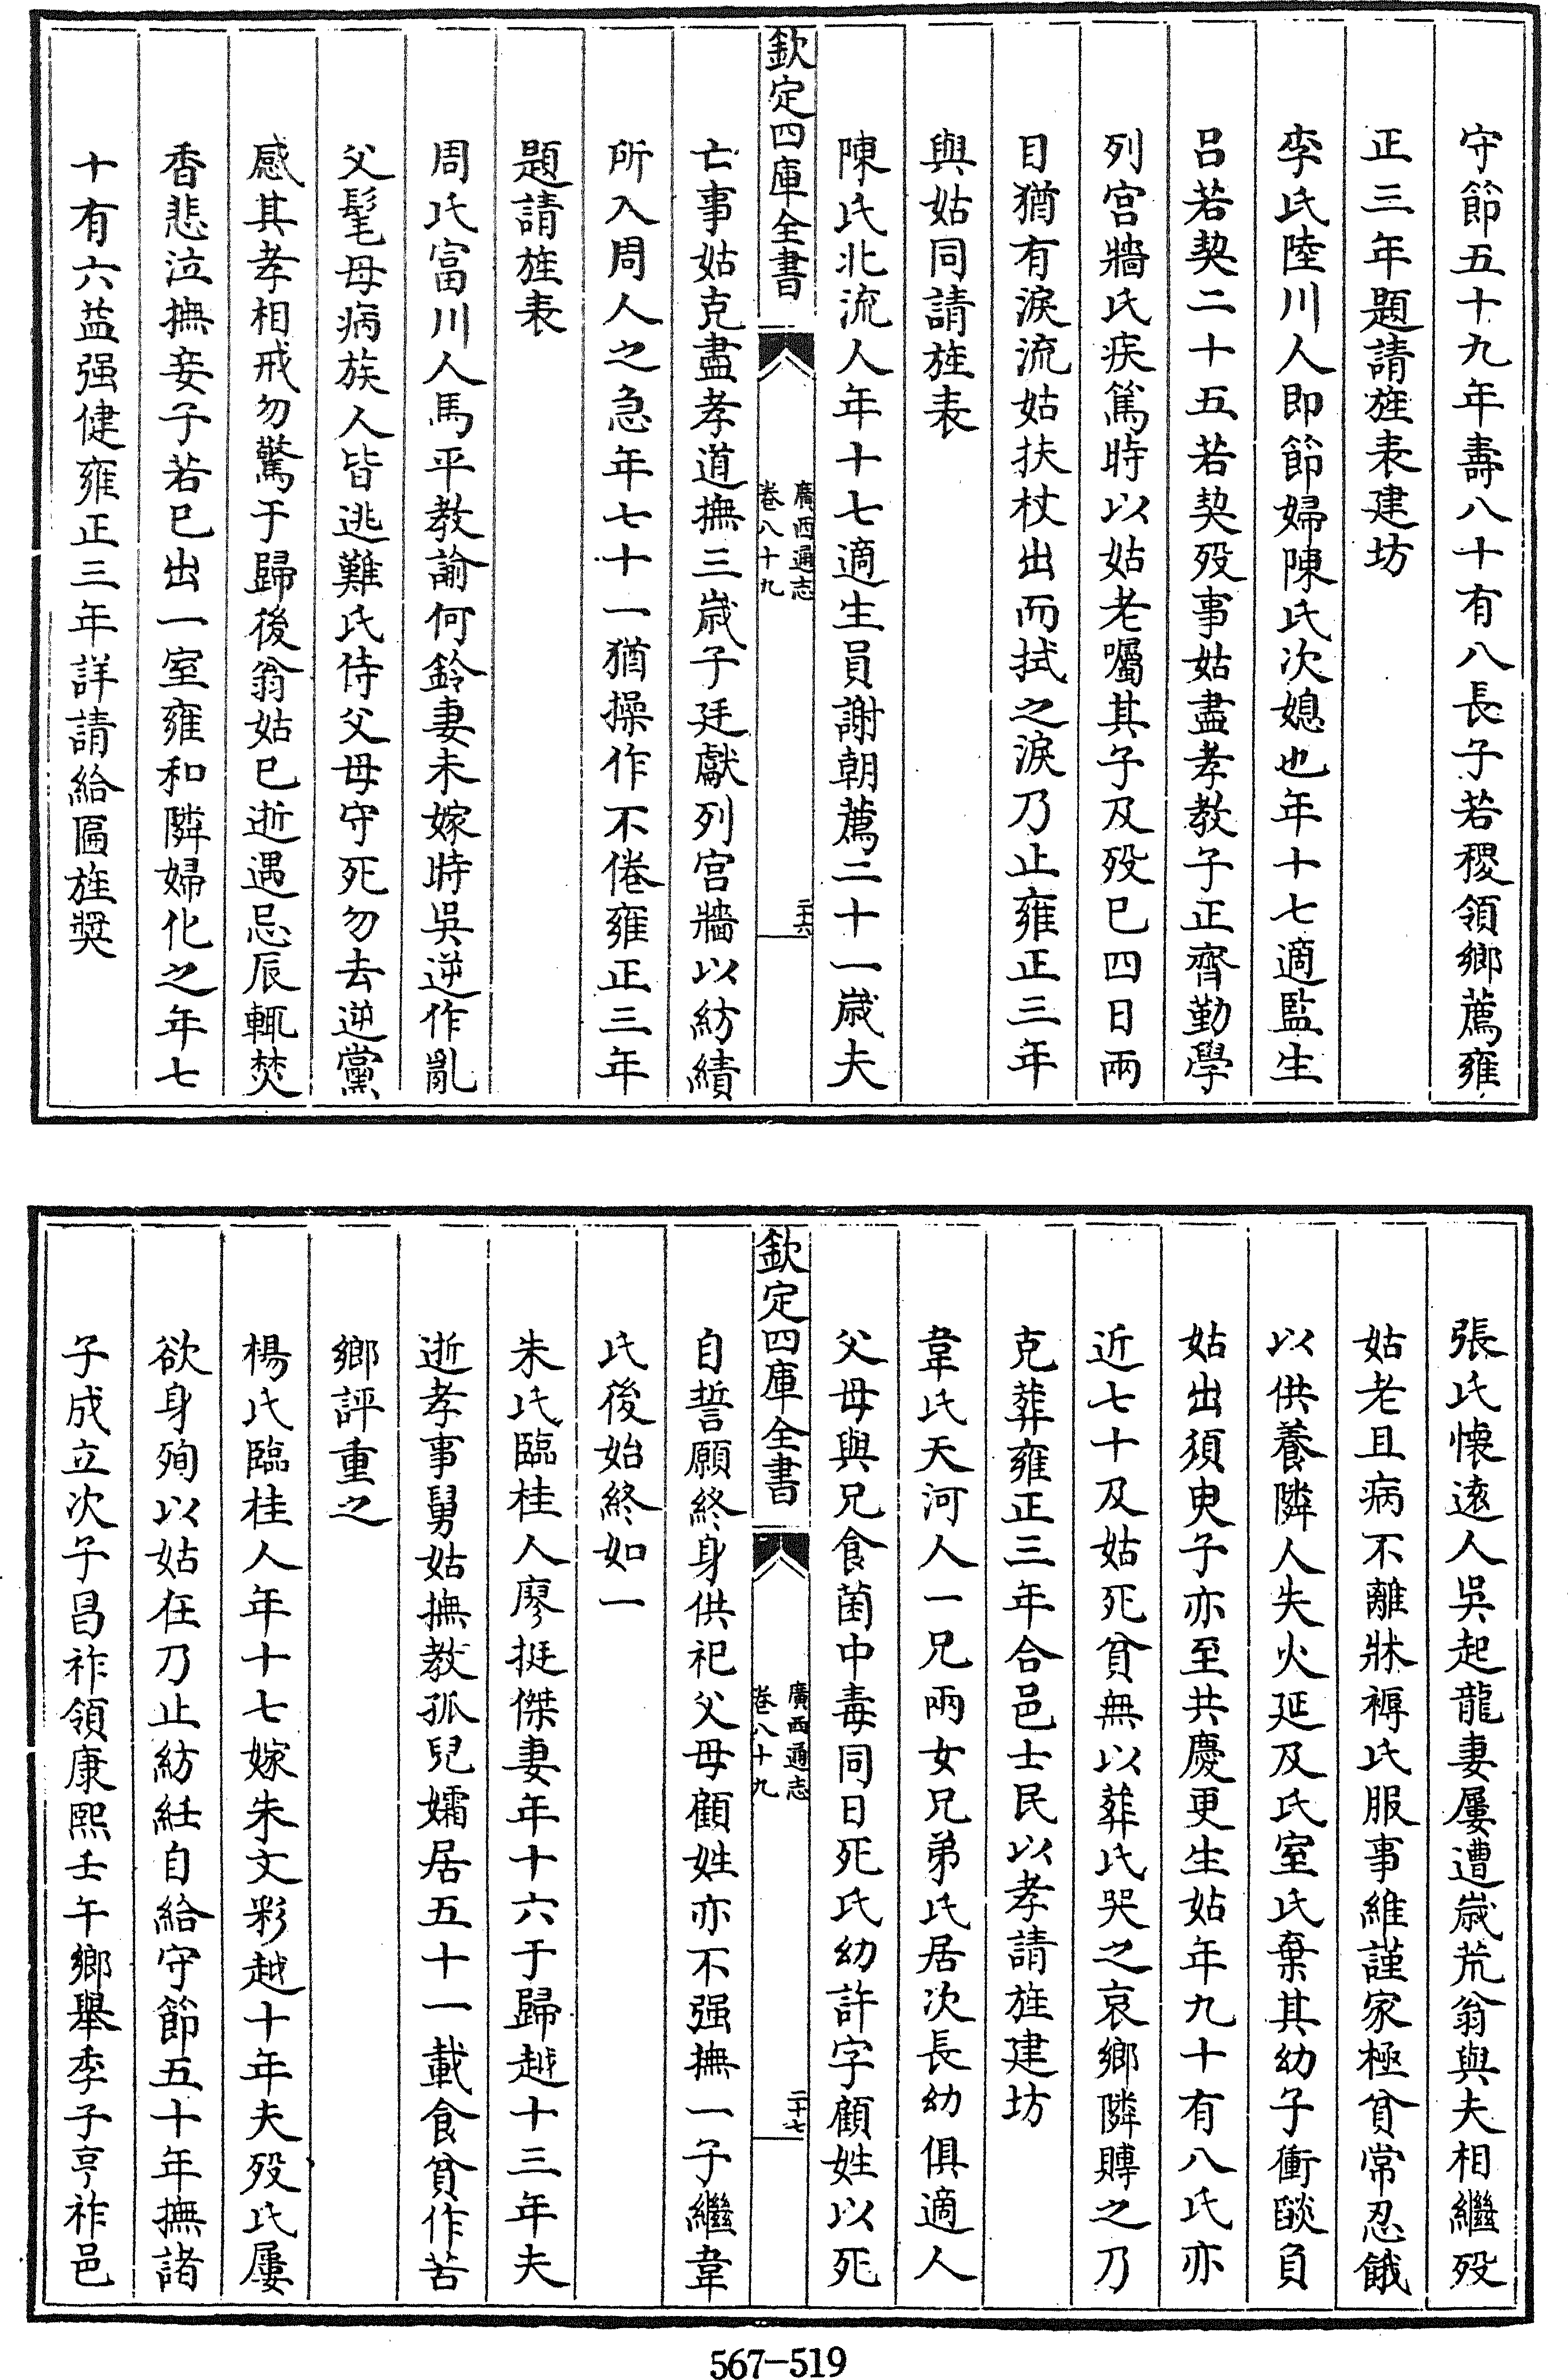 守節五十九年壽八十有八長子若稷領鄉薦雍
正三年題請旌表建坊
李氏陸川人即節婦陳氏次媳也年十七適監生
呂若契二十五若契殁事姑盡孝教子正齊勤學
列宫牆氏疾篤時以姑老囑其子及殁已四日兩
目猶有淚流姑扶杖出而拭之淚乃止雍正三年
與姑同請旌表
陳氏北流人年十七適生員謝朝薦二十一歲夫
欽定四庫全書
廣西通志
卷八十九
二十六
亡事姑克盡孝道撫三歲子廷獻列宫牆以紡績
所入周人之急年七十一猶操作不倦雍正三年
題請旌表
周氏富川人馬平教諭何鈴妻未嫁時吳逆作亂
父髦母病族人皆逃難氏侍父母守死勿去逆黨
感其孝相戒勿驚于歸後翁姑已逝遇忌辰輒焚
香悲泣撫妾子若已出一室雍和隣婦化之年七
十有六益强健雍正三年詳請給匾旌奬
張氏懷遠人吳起龍妻屢遭歲荒翁與夫相繼殁
姑老且病不離牀褥氏服事維謹家極貧常忍餓
以供養隣人失火延及氏室氏棄其幼子衝燄負
姑出須臾子亦至共慶更生姑年九十有八氏亦
近七十及姑死貧無以葬氏哭之哀鄉隣賻之乃
克葬雍正三年合邑士民以孝請旌建坊
韋氏天河人一兄兩女兄弟氏居次長幼俱適人
父母與兄食菌中毒同日死氏幼許字顧姓以死
欽定四庫全書
廣西通志
卷八十九
二十七
自誓願終身供祀父母顧姓亦不强撫一子繼韋
氏後始終如一
朱氏臨桂人廖挺傑妻年十六于歸越十三年夫
逝孝事舅姑撫教孤兒孀居五十一載食貧作苦
鄉評重之
楊氏臨桂人年十七嫁朱文彩越十年夫殁氏屢
欲身殉以姑在乃止紡紝自給守節五十年撫諸
子成立次子昌祚領康熙壬午鄉舉季子亨祚邑
567-519